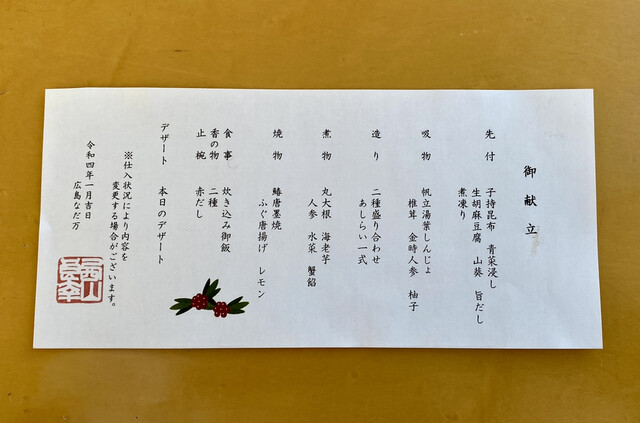 御献立
先付 子持昆布 青菜浸し
生胡麻豆腐 山葵 旨だし
煮凍り
吸物 帆立湯葉しんじょ
椎茸 金時人参 柚子
造り 二種盛り合わせ
あしらい一式
煮物 丸大根 海老芋
人参 水菜 蟹餡
焼物 鰆唐墨焼
ふぐ唐揚げ レモン
食事 炊き込み御飯
香の物 二種
止椀 赤だし
デザート 本日のデザート
※仕入状況により内容を
変更する場合がございます。
令和四年一月吉日
広島なだ万